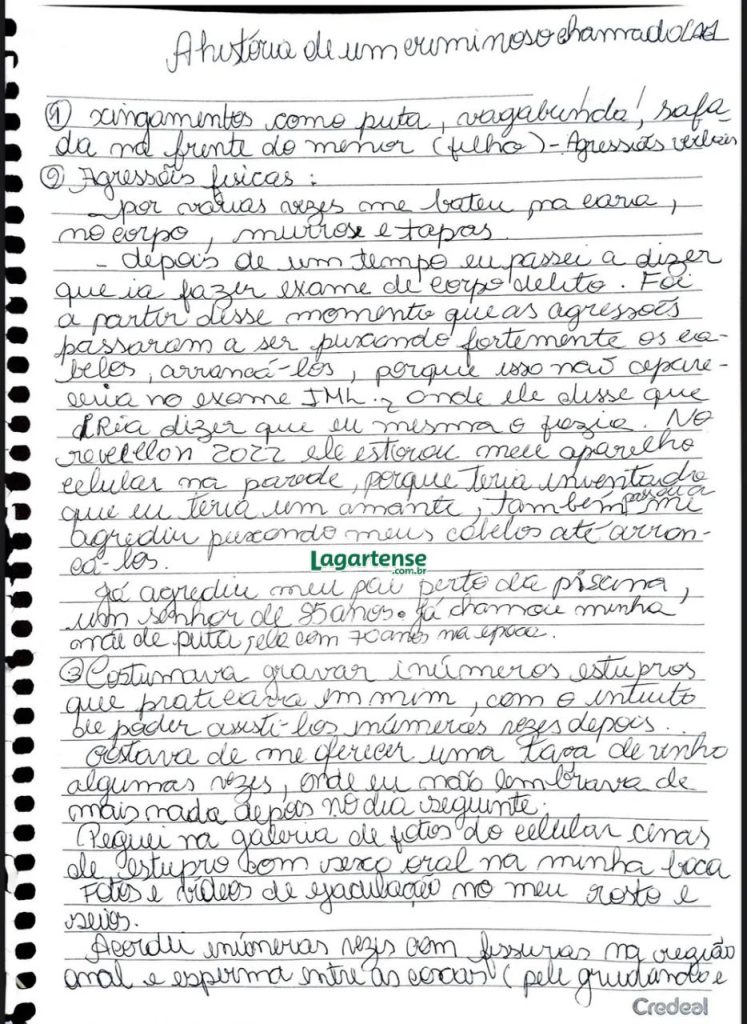 A história de um criminoso chamado LAEL
① xingamentos como puta, vagabunda, safa-
da na frente do menor (filho) - Agressões verbais
② Agressões físicas :
- por várias vezes me bateu na cara,
no corpo, murros e tapas.
- depois de um tempo eu passei a dizer
que ia fazer exame de corpo delito. Foi
a partir disse momento que as agressões
passaram a ser puxando fortemente os ca-
belos, arrancá-los, porque isso não apare-
ceria no exame IML., onde ele disse que
iRia dizer que eu mesma o fazia. No
reveillon 2022 ele estorou meu aparelho
celular na parede, porque teria inventado
que eu teria um amante, também passou a mi
agrediu puxando meus cabelos até arran-
cá-los.
Lagartense
.com.br
Já agrediu meu pai perto da piscina,
um senhor de 85 anos. Já chamou minha
mãe de puta, ela com 70 anos na época.
③ Costumava gravar inúmeros estupros
que praticava em mim, com o intuito
de poder assisti-los inúmeras vezes depois.
Gostava de me oferecer uma taça de vinho
algumas vezes, onde eu não lembrava de
mais nada depois no dia seguinte.
Peguei na galeria de fotos do celular cenas
de estupro com sexo oral na minha boca
Fotos e vídeos de ejaculação no meu rosto e
seios.
Acordei inúmeras vezes com fissuras na região
anal e esperma entre as coxas (pele grudando e
Credeal